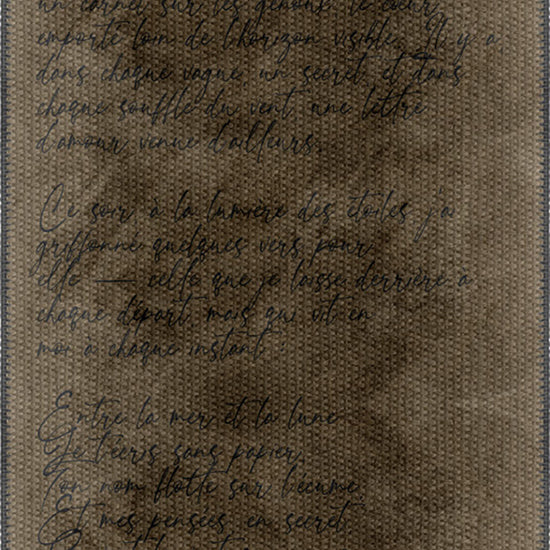 un carnet sur les genoux le cœur
emporté loin de l'horizon visible Il y a
dans chaque vague un secret et dans
chaque souffle du vent une lettre
d'amour venue d'ailleurs
Ce soir à la lumière des étoiles j'ai
griffonné quelques vers pour
elle — celle que je laisse derrière à
chaque départ mais qui vit en
moi à chaque instant
Entre la mer et la lune
Je t'écris sans papier
Ton nom flotte sur l'écume
Et mes pensées en secret